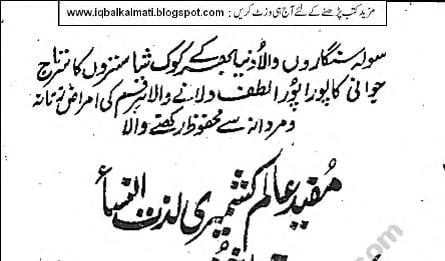 مزید کتب پڑھنے کے لئے آج ہی وزٹ کریں : www.iqbalkalmati.blogspot.com
سولہ سنگاروں والا دنیا بھر کے کوک شاستروں کا سرتاج
جوانی کا پورا پورا لطف دلانے والا ہر قسم کی امراض زنانہ
و مردانہ سے محفوظ رکھنے والا
مفید عالم کشمیری لذت النساء